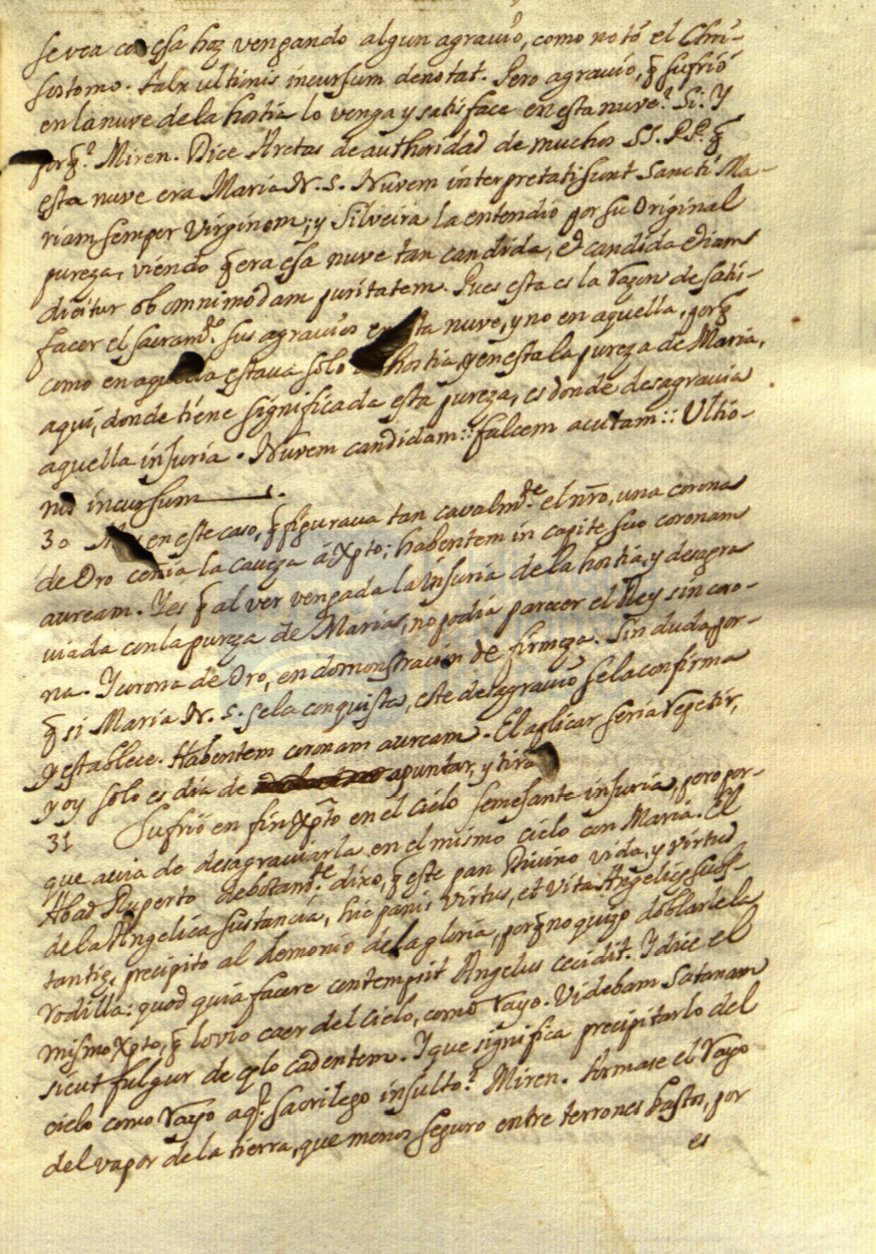 se vea co esa hoz vengando algun agravio, como notó el Chri-
sostomo. Falx ultimis incursum denotat. Pero agravio, q̃ sufrió
en la nuve de la hostia lo venga y satisface en esta nuve? Si. Y
porq̃? Miren. Dice Aretas de authoridad de muchos SS. PP. q̃
esta nuve era Maria N. S. Nuvem interpretati sunt Sancti Ma-
riam semper Virginem; y Silveira la entendio por su Original
pureza, viendo q̃ era esa nuve tan candida, et candida etiam
dicitur ob omnimodam puritatem. Pues esta es la razon de satis-
facer el sacram.to sus agravios en esta nuve, y no en aquella, porq̃
como en aquella estava solo hostia, y en esta la pureza de Maria,
aqui, donde tiene significada esta pureza, es donde desagravia
aquella injuria. Nuvem candidam:: falcem acutam:: Ultio-
nis incursum.
30 en este caso, q̃ figurava tan cavalm.te el nr̃o, una corona
de Oro ceñia la caveza á Xpto; habentem in capite suo coronam
auream. Y es q̃ al ver vengada la injuria de la hostia, y desagra
viada con la pureza de Maria, no podia parecer el Rey sin coro-
na. Y corona de Oro, en demonstracion de firmeza. Sin duda, por-
q̃ si Maria N. S. se la conquista, este desagravio se la confirma
y establece. Habentem coronam auream. El aplicar seria repetir,
y oy solo es dia de apuntar, y tirar
31 Sufrió en fin Xp̃to en el cielo semejante injuria, pero por-
que avia de desagraviarla en el mismo cielo con Maria. El
Abad Ruperto dixo, q̃ este pan Divino vida, y virtud
de la Angelica sustancia, hic panis virtus, et vita Angelicę subs-
tantię, precipito al demonio de la gloria, porq̃ no quizo doblarle la
rodilla: quod quia facere contempsit Angelus cecidit. Y dice el
mismo Xpto, q̃ lo vio caer del cielo, como rayo. Videbam satanam
sicut fulgur de cęlo cadentem. Y que significa precipitarlo del
cielo como rayo aq.l sacrilego insulto? Miren. Formase el rayo
del vapor de la tierra, que menos seguro entre terrones bastos, por
es